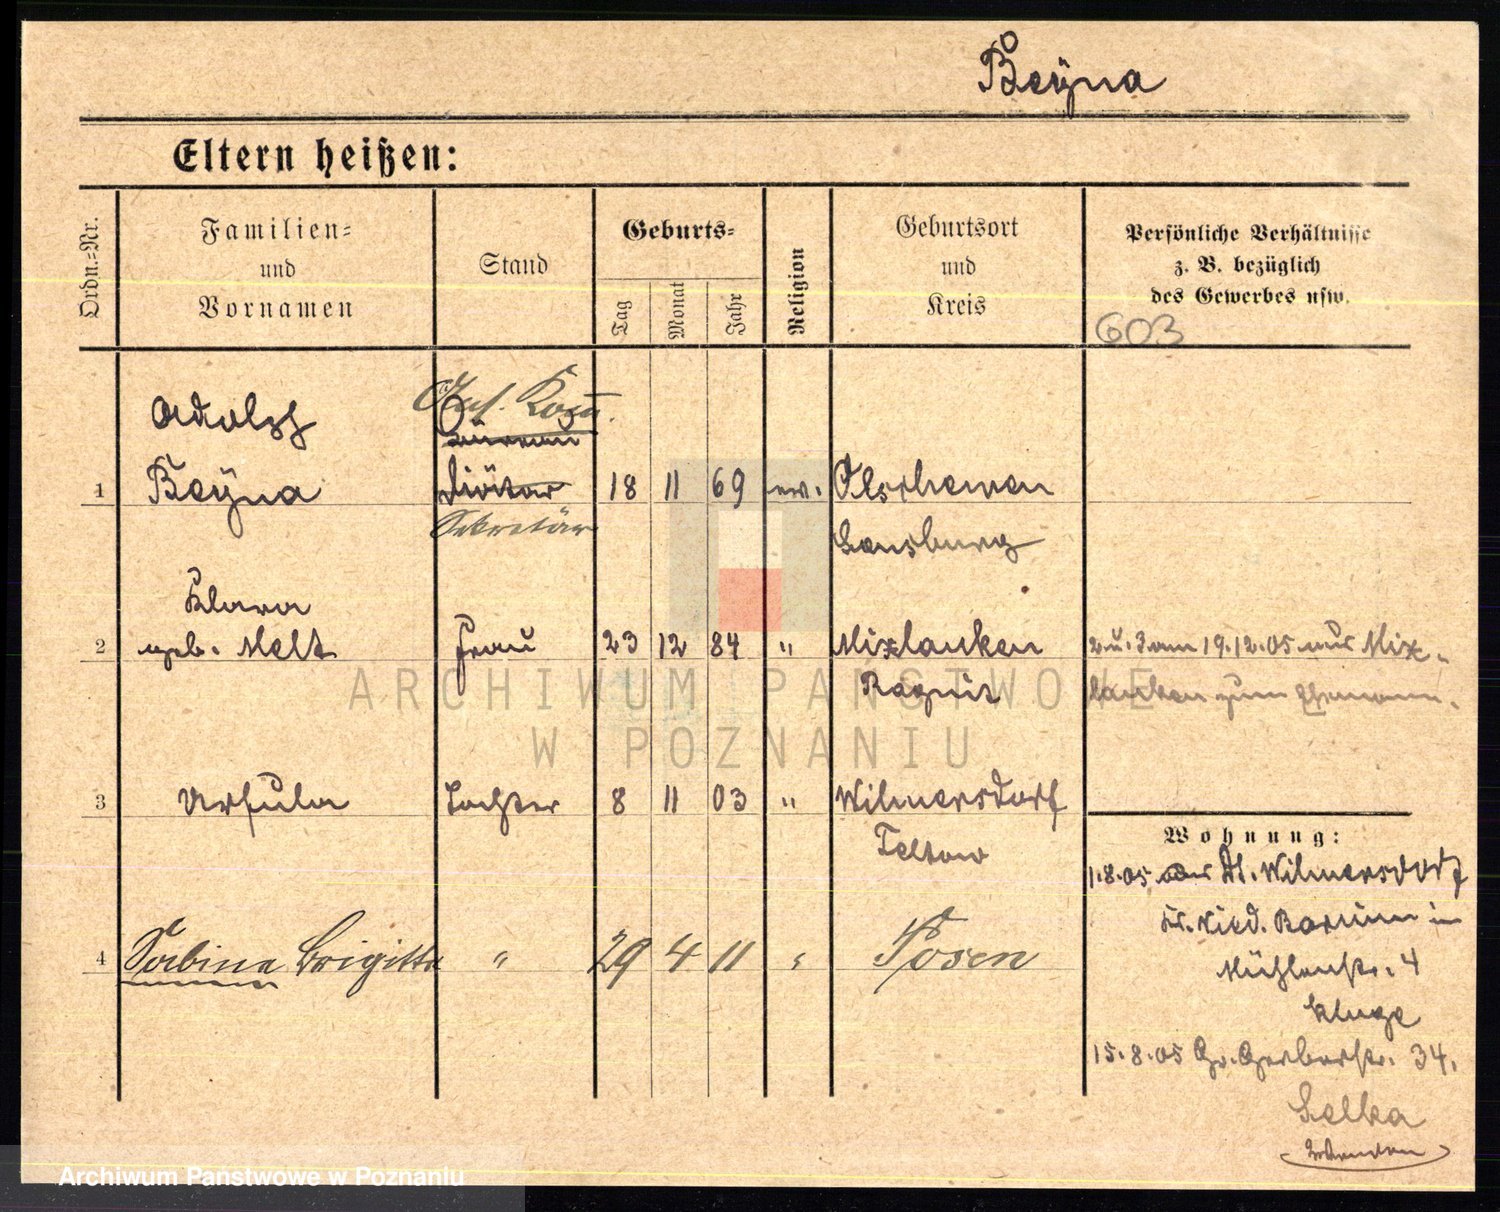 Beÿna
Eltern heißen:
Ordn.-Nr.
Familien-
und
Vornamen
Stand
Geburts-
Tag
Monat
Jahr
Religion
Geburtsort
und
Kreis
Persönliche Verhältnisse
z. B. bezüglich
des Gewerbes usw.
603
Adolph
1 Beÿna
Büreau
Diötar
Sekretär
18 11 69 ev.
Sensburg
Klara
2 geb. Melt Frau 23 12 84 " Mixlauken
Ragnit
2 u. 3 am 19.12.05 aus Mix-
lauken zum Ehemann.
3 Ursula Tochter 8 11 03 " Wilmersdorf
Teltow
4 Sabine Brigitte " 29 4 11 " Posen
Wohnung:
1.8.05 aus Dt. Wilmersdorf
Kr. Nied. Barnim in
Mühlenstr. 4
Kluge
15.8.05 Gr. Gerberstr. 34.
Selka
ARCHIWUM PAŃSTWOWE
W POZNANIU
Archiwum Państwowe w Poznaniu